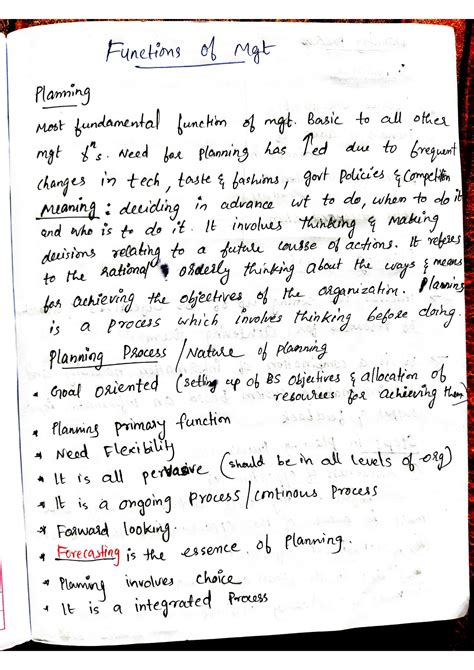 Functions of Mgt
Planning
Most fundamental function of mgt. Basic to all other
mgt fⁿs. Need for planning has ↑ed due to frequent
changes in tech, taste & fashions, govt policies & Competition
Meaning : deciding in advance wt to do, when to do it
and who is to do it. It involves thinking & Making
decisions relating to a future course of actions. It referes
to the rational orderly thinking about the ways & means
for achieving the objectives of the organization. Planning
is a process which involves thinking before doing.
Planning Process / Nature of planning
* Goal oriented (setting up of BS Objectives & allocation of
resources for achieving them
* Planning primary function
* Need Flexibility
* It is all pervasive (should be in all levels of org)
* It is a ongoing process/continous process
* Forward looking.
* Forecasting is the essence of Planning.
* Planning involves choice
* It is a integrated Process